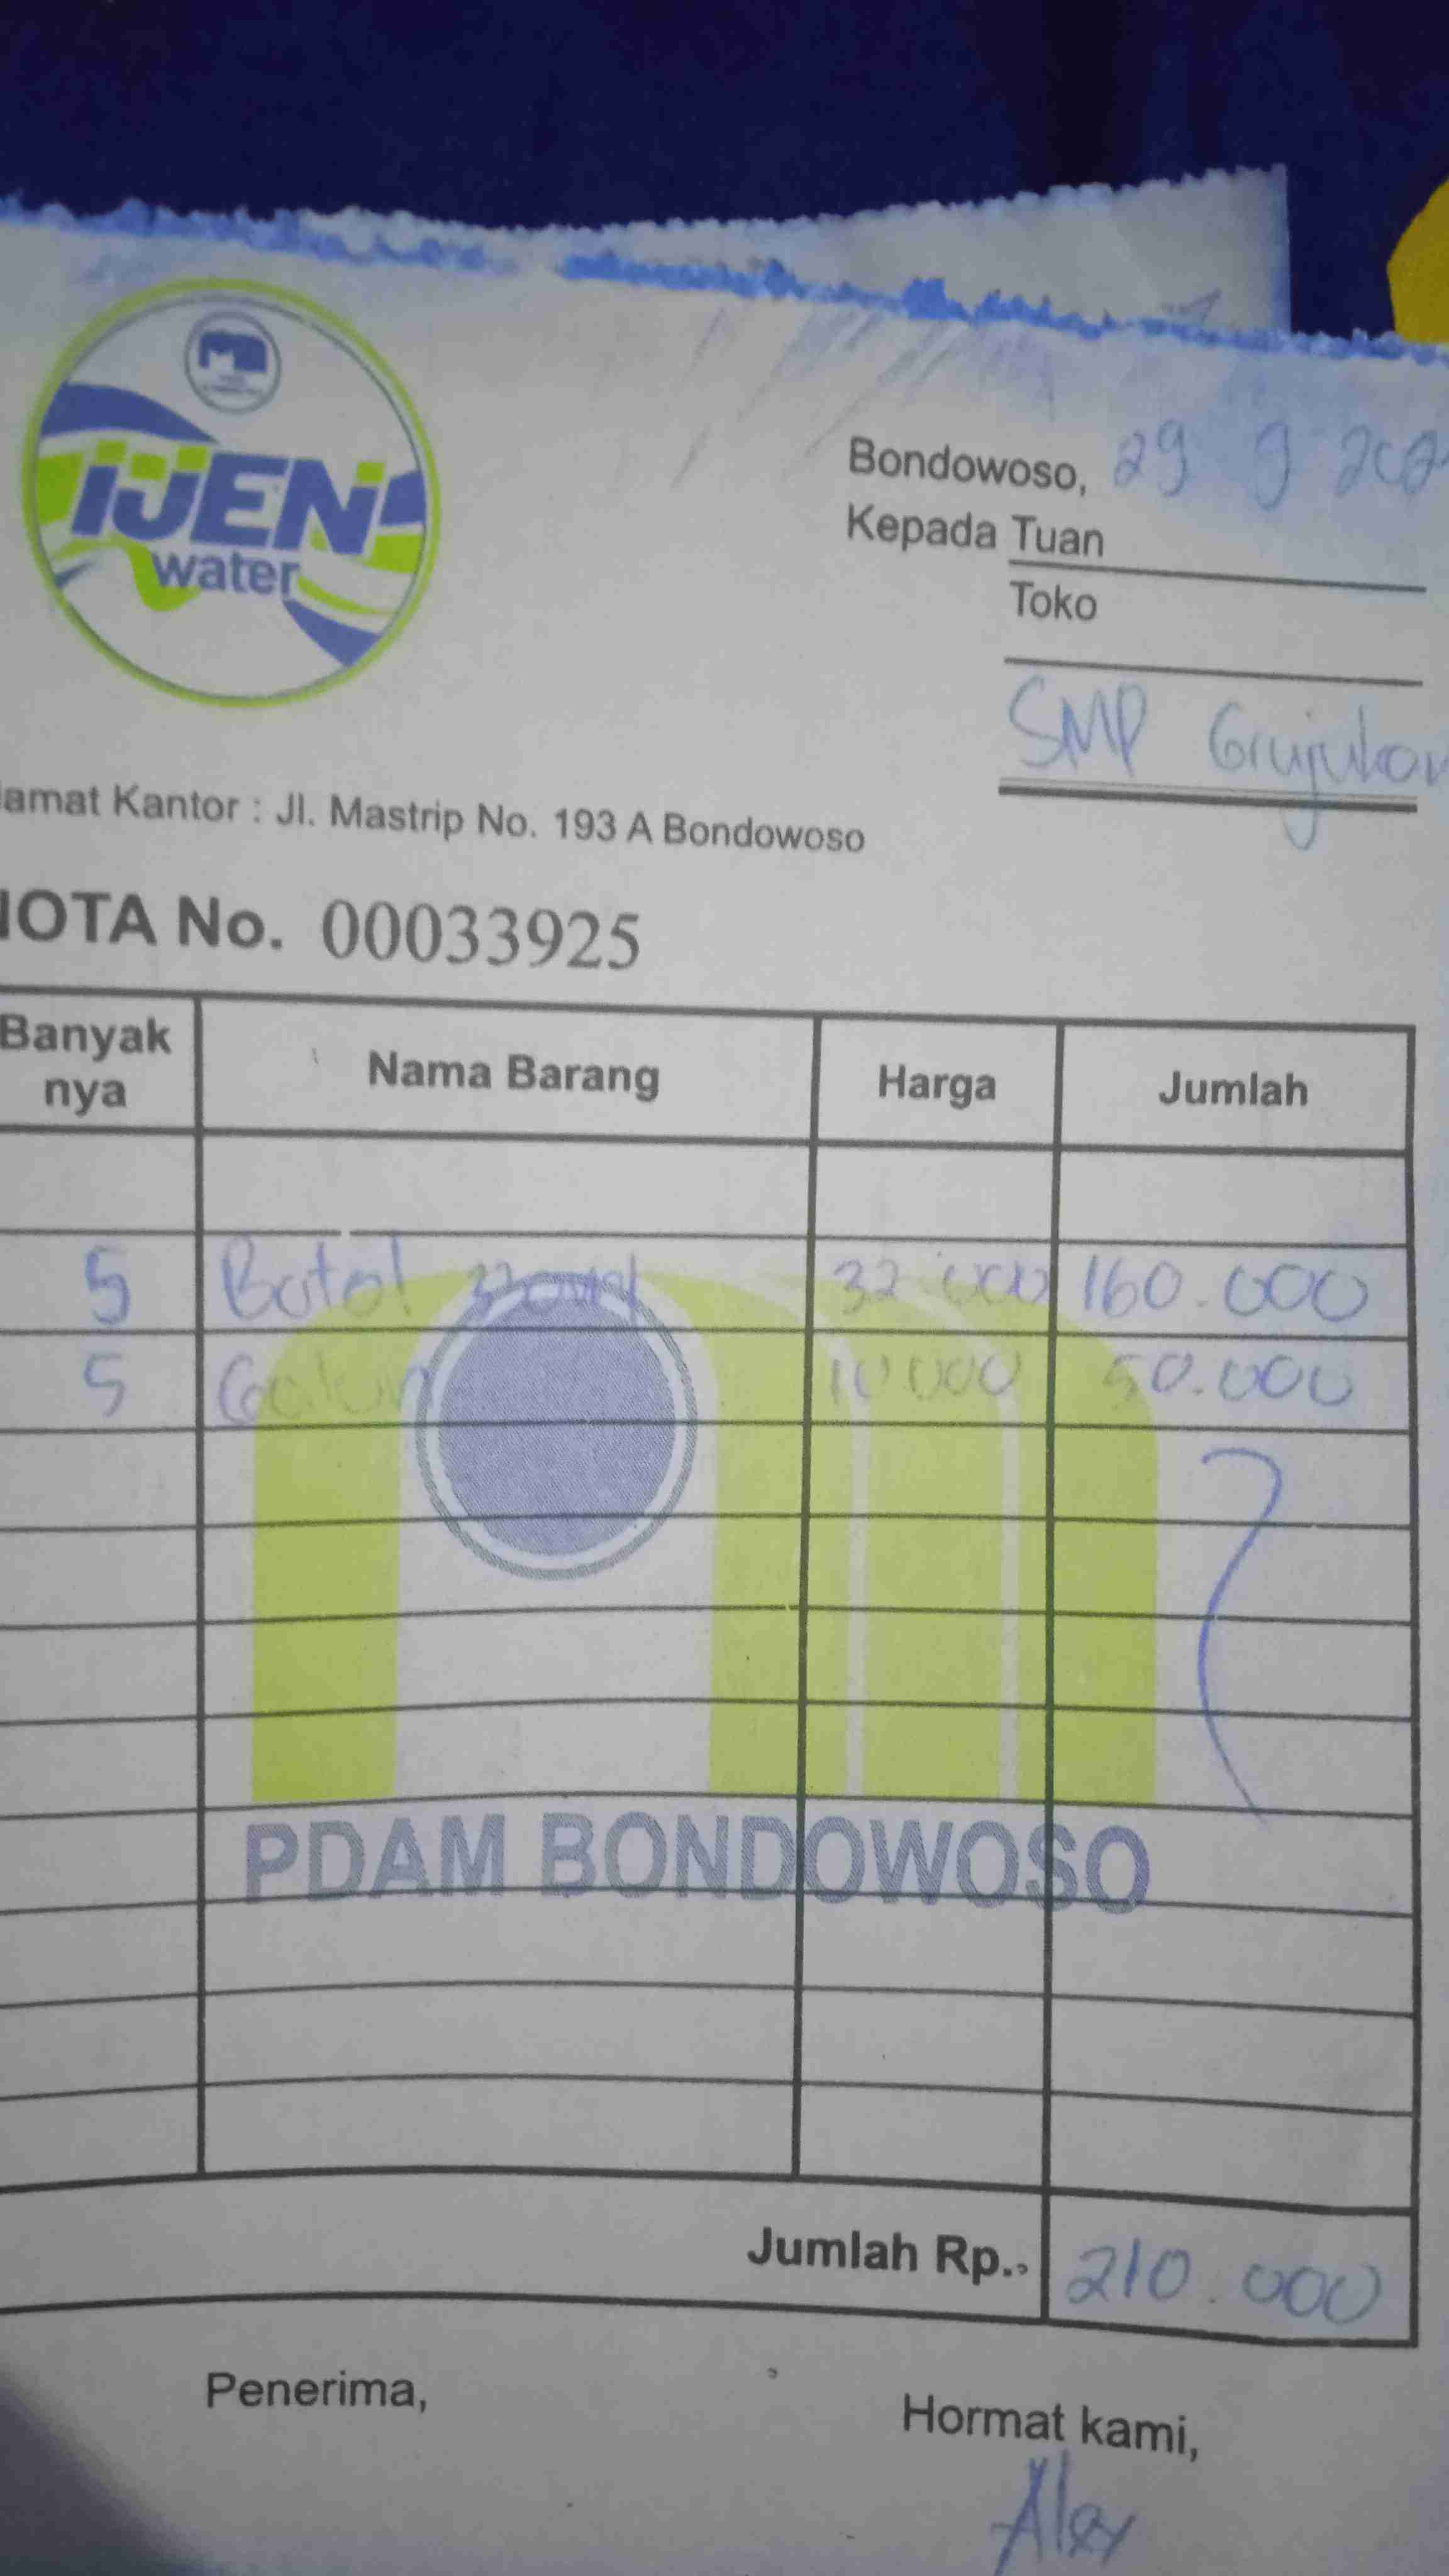 IJEN
water
Bondowoso, 29 9 202
Kepada Tuan
Toko
SMP Grujukan
lamat Kantor : Jl. Mastrip No. 193 A Bondowoso
NOTA No. 00033925
Banyak nya Nama Barang Harga Jumlah
5 Botol 330 ml 32.000 160.000
5 Galon 10 000 50.000
PDAM BONDOWOSO
Jumlah Rp.. 210.000
Penerima, Hormat kami,
Alex